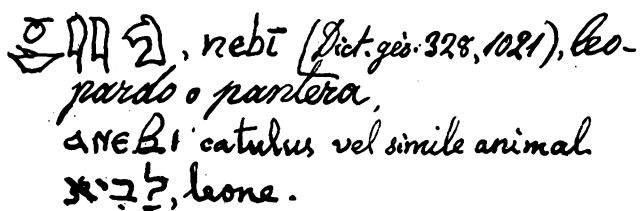 , nebī (Dict. gés. 328, 1021), leo-
pardo o pantera,
ⲁⲛⲉⲃⲓ catulus vel simile animal
לָבִיא, leone.